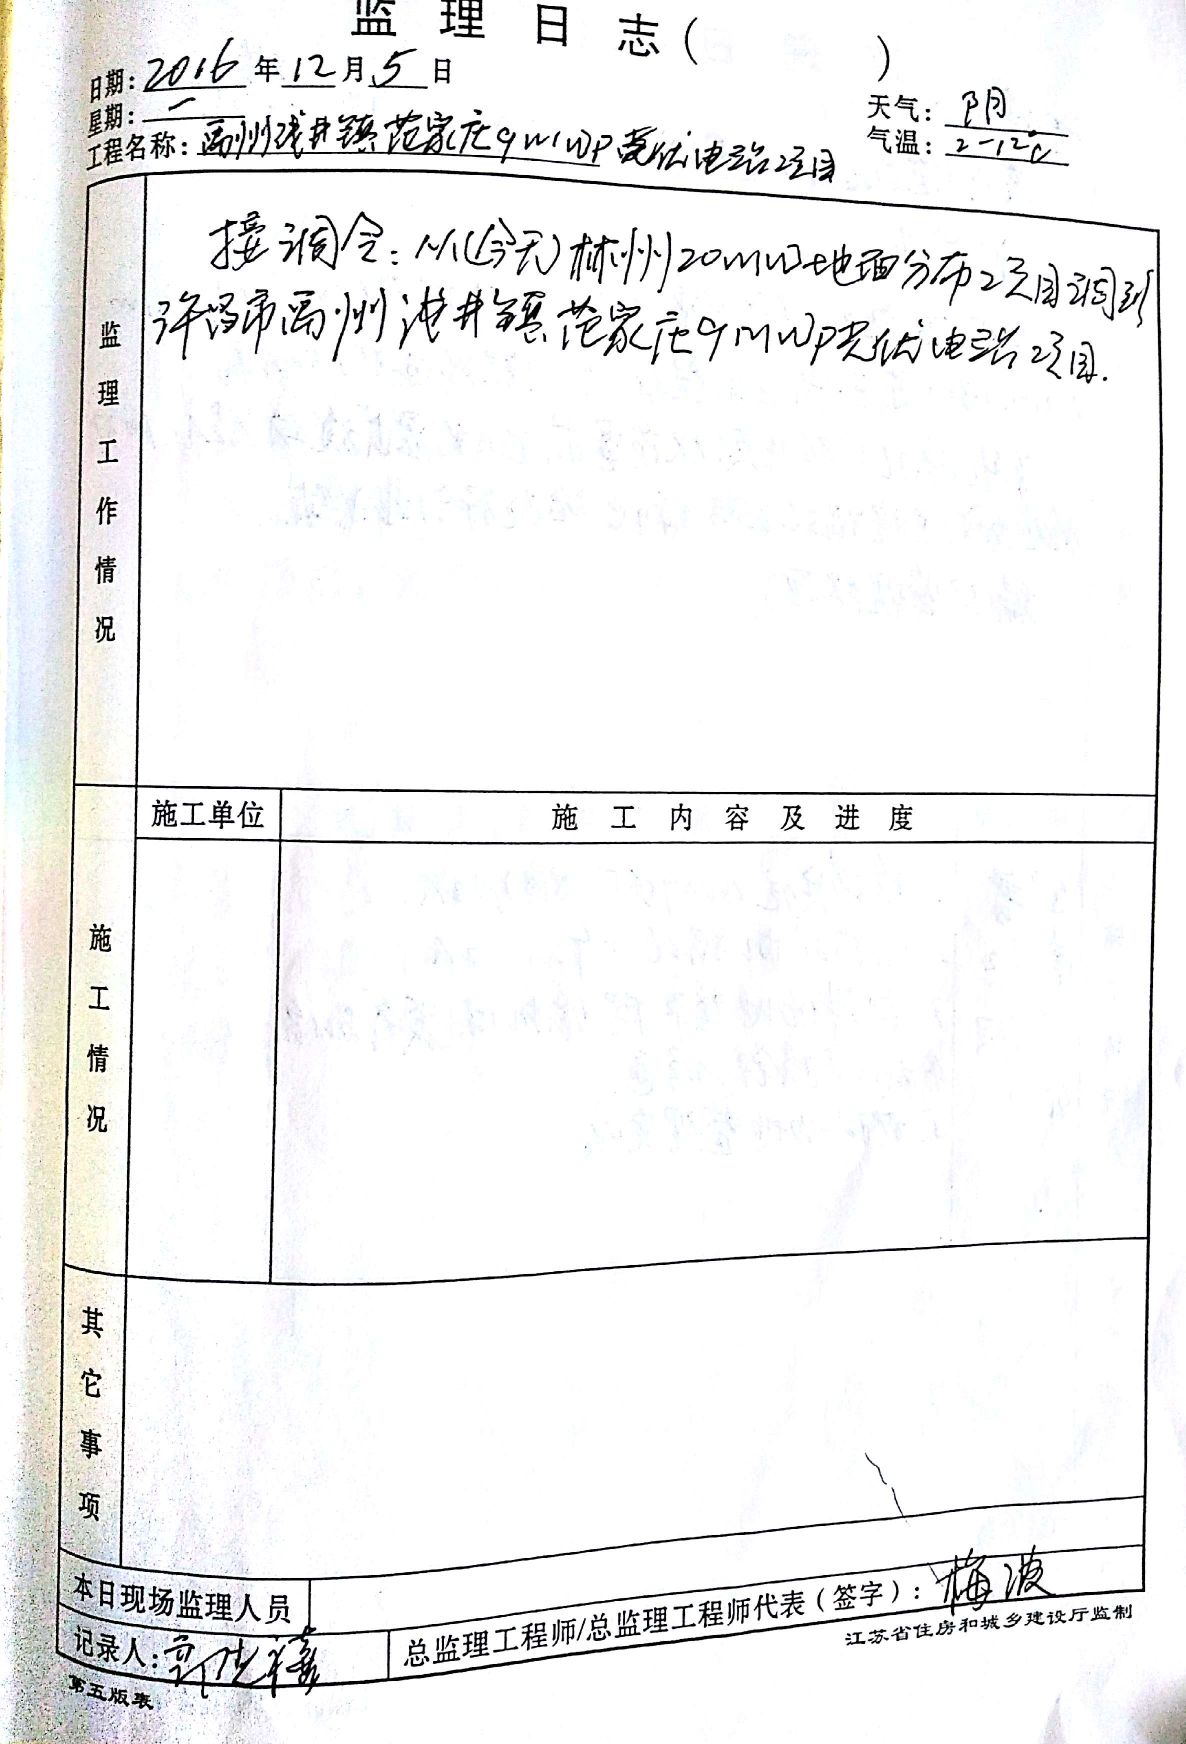 监理日志( )
日期: 2016 年 12 月 5 日
星期: 一
天气: 阴
工程名称: 禹州浅井镇范家庄9MWP光伏电站项目
气温: 2-12℃
监理工作情况
接调令: 从(今天)林州20MW地面分布项目调到
许昌市禹州浅井镇范家庄9MWP光伏电站项目.
施工单位
施工内容及进度
施工情况
其它事项
本日现场监理人员
记录人:
总监理工程师/总监理工程师代表(签字): 梅波
江苏省住房和城乡建设厅监制
第五版表